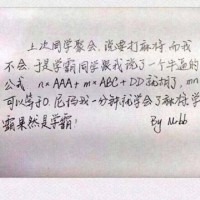 上次同学聚会,说要打麻将而我
不会,于是学霸同学跟我说了一个牛逼的
公式 n×AAA+m×ABC+DD就胡了,mn
可以等于0.尼玛我一分钟就学会了麻将,学
霸果然是学霸!
By